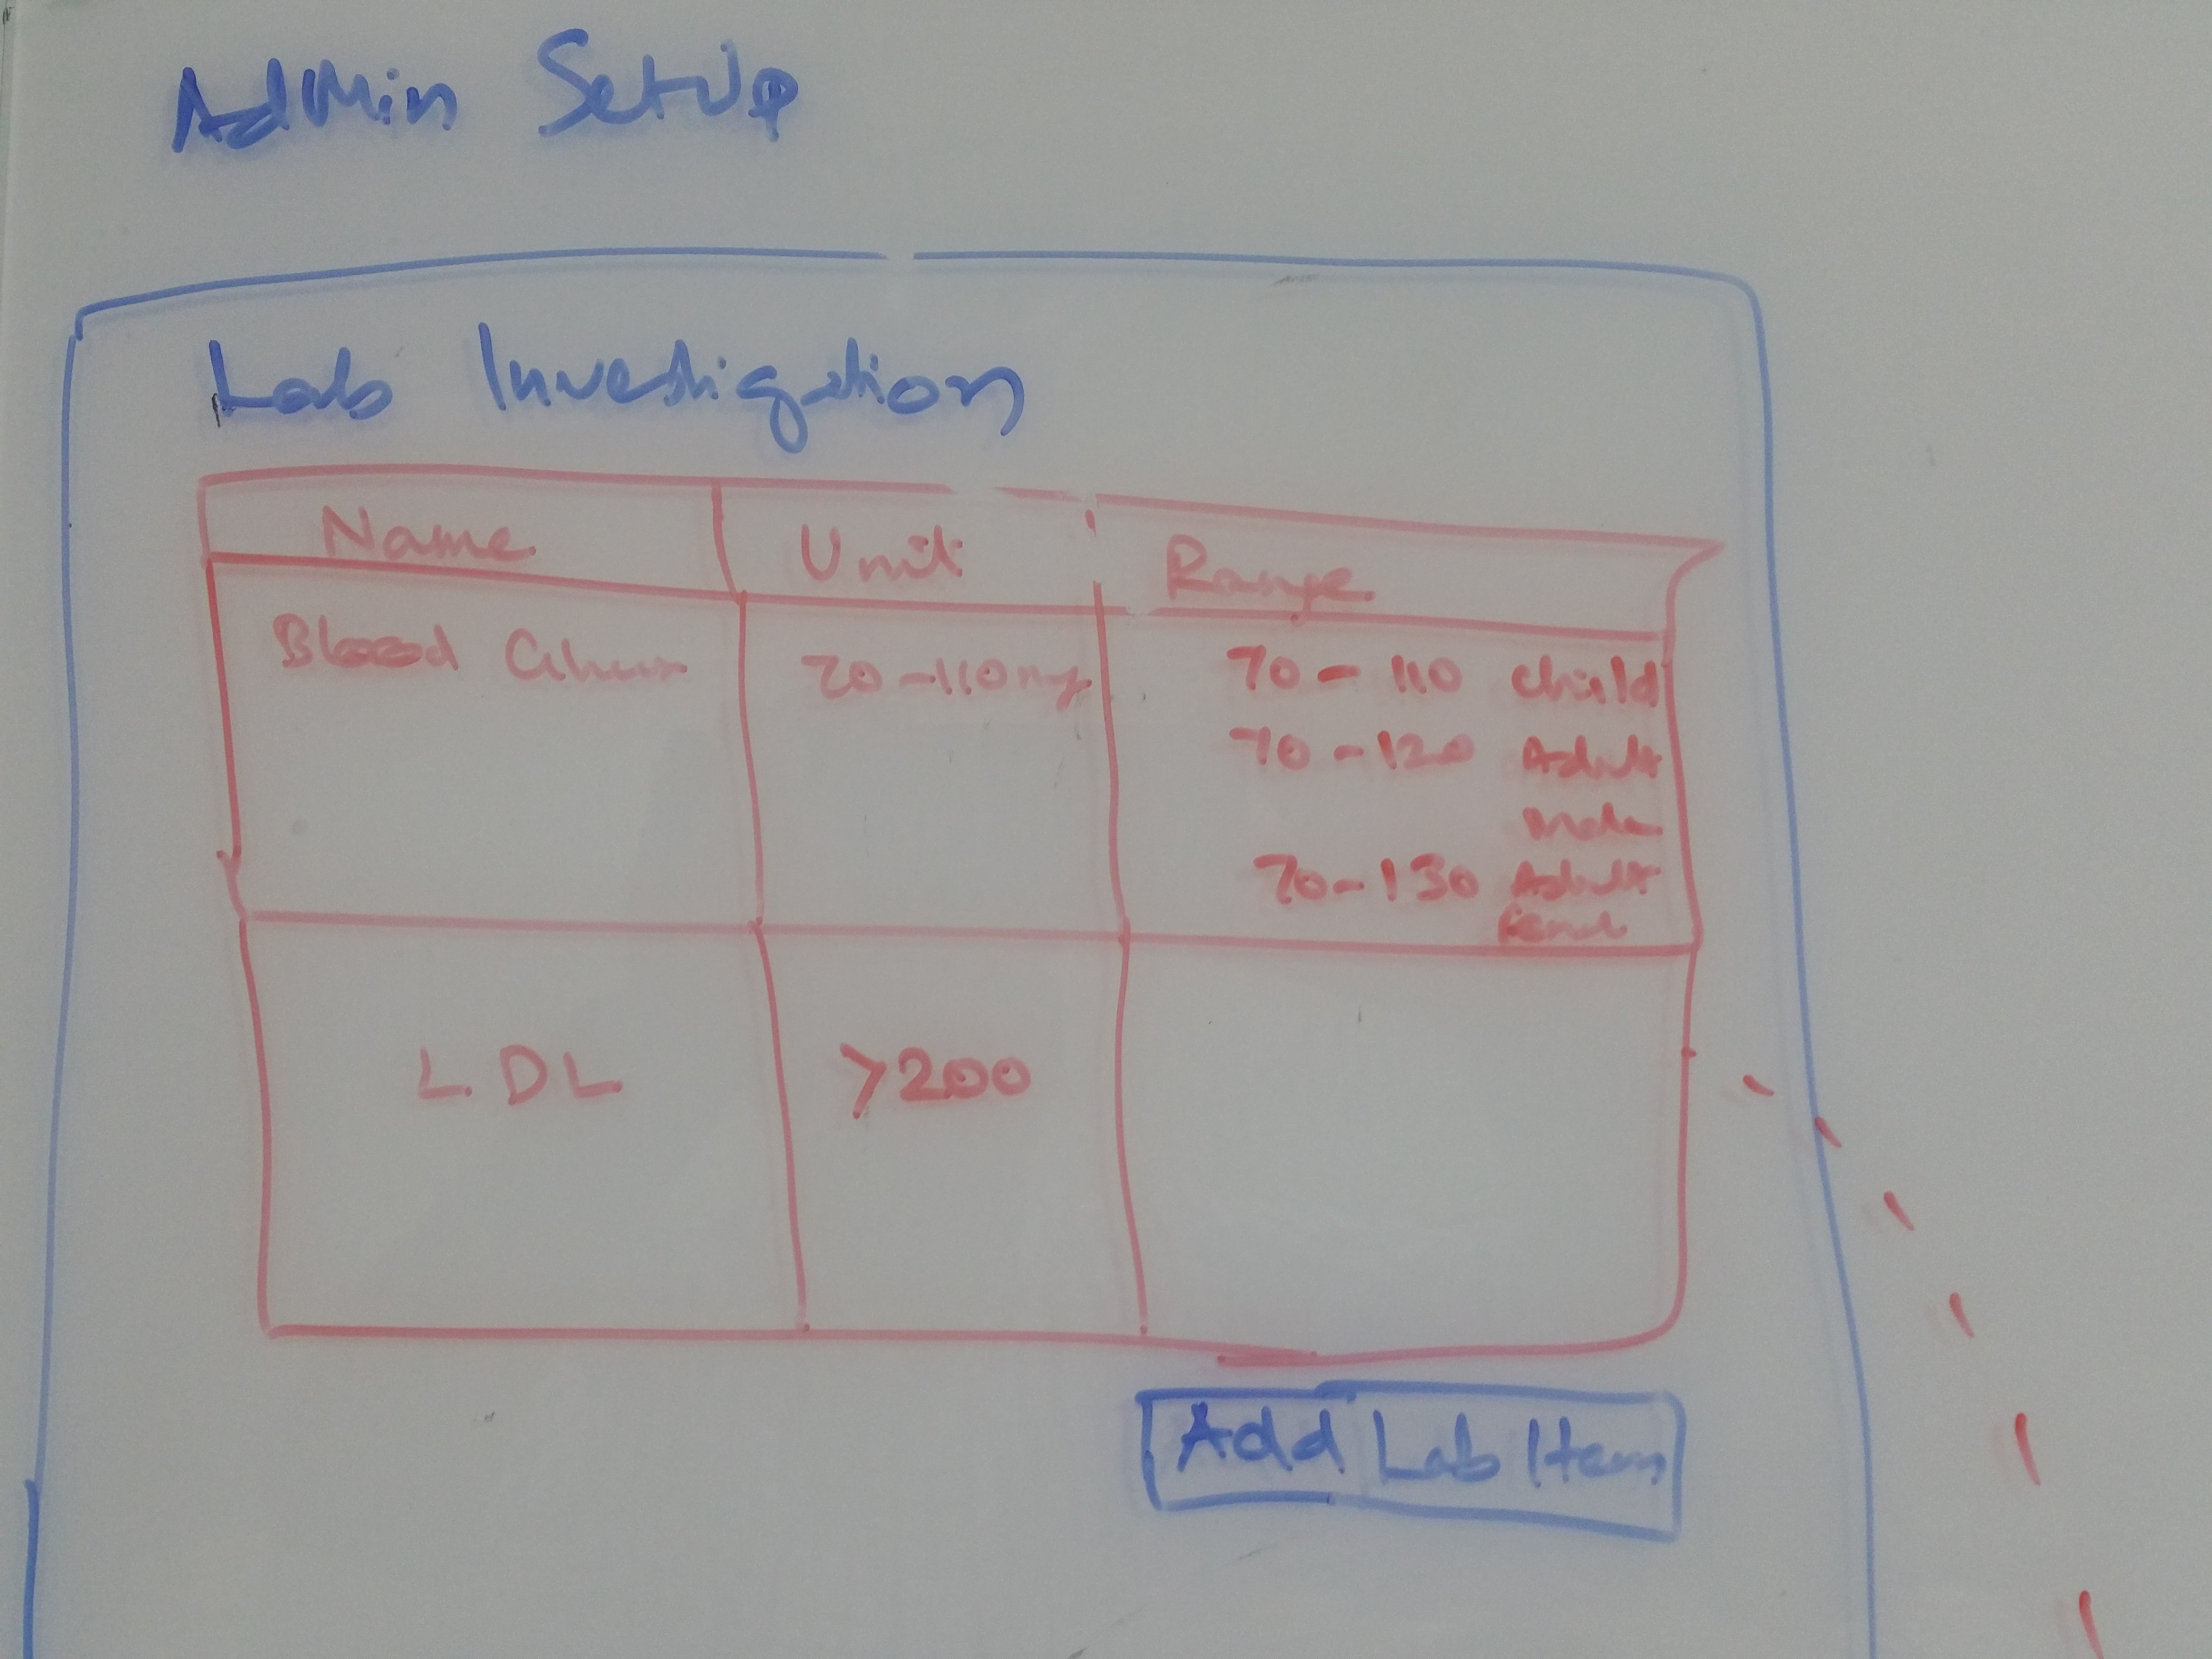 Admin Setup
Lab Investigation
Name Unit Range
Blood 70-110mg 70-110 child
70-120 Adult
male
70-130 Adult
LDL >200
Add Lab Item